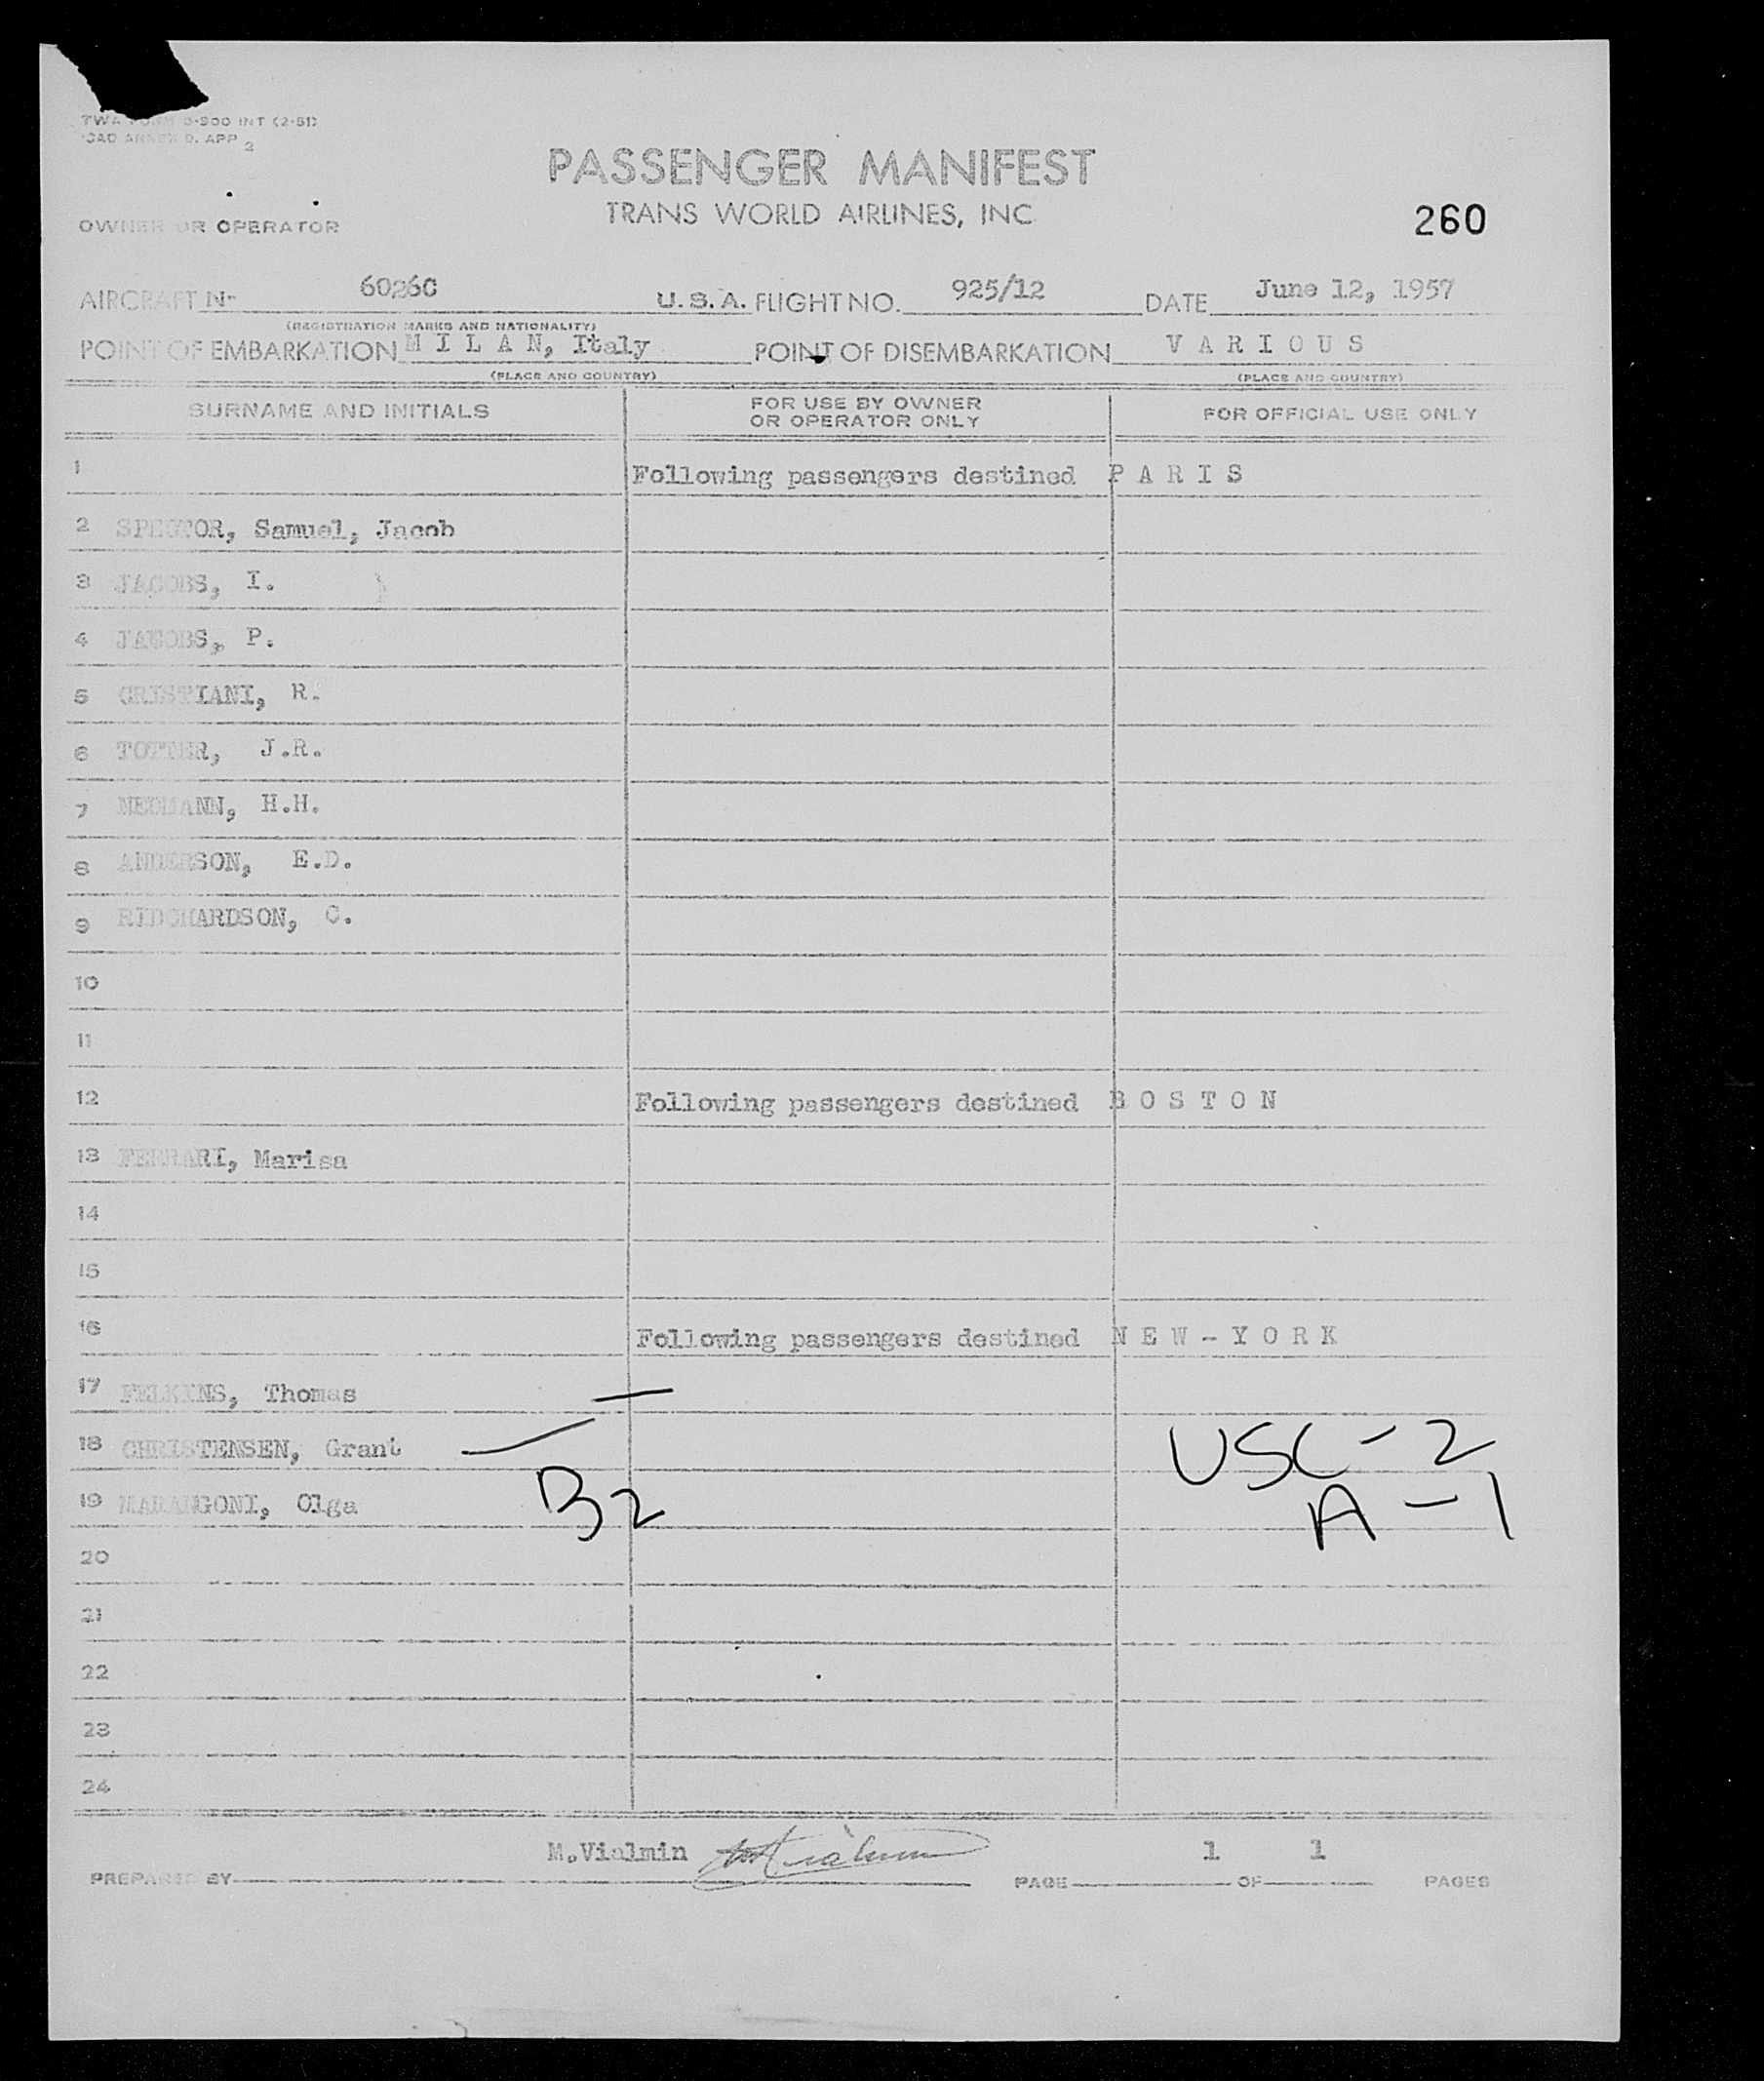 TWA FORM 0-900 INT (2-51)
ICAO ANNEX 9, APP 2
PASSENGER MANIFEST
TRANS WORLD AIRLINES, INC
260
OWNER OR OPERATOR
AIRCRAFT No 60260 U.S.A. FLIGHT NO. 925/12 DATE June 12, 1957
(REGISTRATION MARKS AND NATIONALITY)
POINT OF EMBARKATION M I L A N, Italy POINT OF DISEMBARKATION V A R I O U S
(PLACE AND COUNTRY) (PLACE AND COUNTRY)
SURNAME AND INITIALS FOR USE BY OWNER OR OPERATOR ONLY FOR OFFICIAL USE ONLY
1 Following passengers destined P A R I S
2 SPECTOR, Samuel, Jacob
3 JACOBS, I.
4 JACOBS, P.
5 CRISTIANI, R.
6 TOTTER, J.R.
7 H.H.
8 ANDERSON, E.D.
9 RIDCHARDSON, C.
10
11
12 Following passengers destined B O S T O N
13 FERRARI, Marisa
14
15
16 Following passengers destined N E W - Y O R K
17 FELKINS, Thomas —
18 CHRISTENSEN, Grant — USC-2
19 MARANGONI, Olga B2 A-1
20
21
22
23
24
PREPARED BY M.Vialmin PAGE 1 OF 1 PAGES